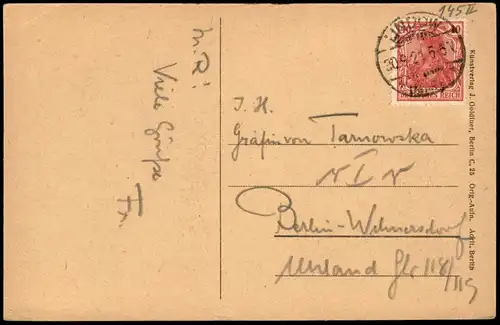 145 II
M. R!
Viele Grüße
Fr.
LINDOW
30.9.21. 5-6
40
DEUTSCHES REICH
I. H.
Gräfin von Tarnowska
Berlin-Wilmersdorf
Uhland Str 118/
119
Kunstverlag J. Goldiner, Berlin C. 25 Orig.-Aufn. Adrit, Berlin